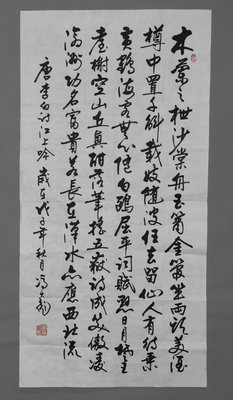 木蘭之枻沙棠舟玉簫金管坐兩頭美酒
樽中置千斛載妓隨波任去留仙人有待乘
黃鶴海客無心隨白鷗屈平詞賦懸日月楚王
臺榭空山丘興酣落筆搖五嶽詩成笑傲凌
滄洲功名富貴若長在漢水亦應西北流
唐李白詩江上吟 歲在戊子年秋月馮